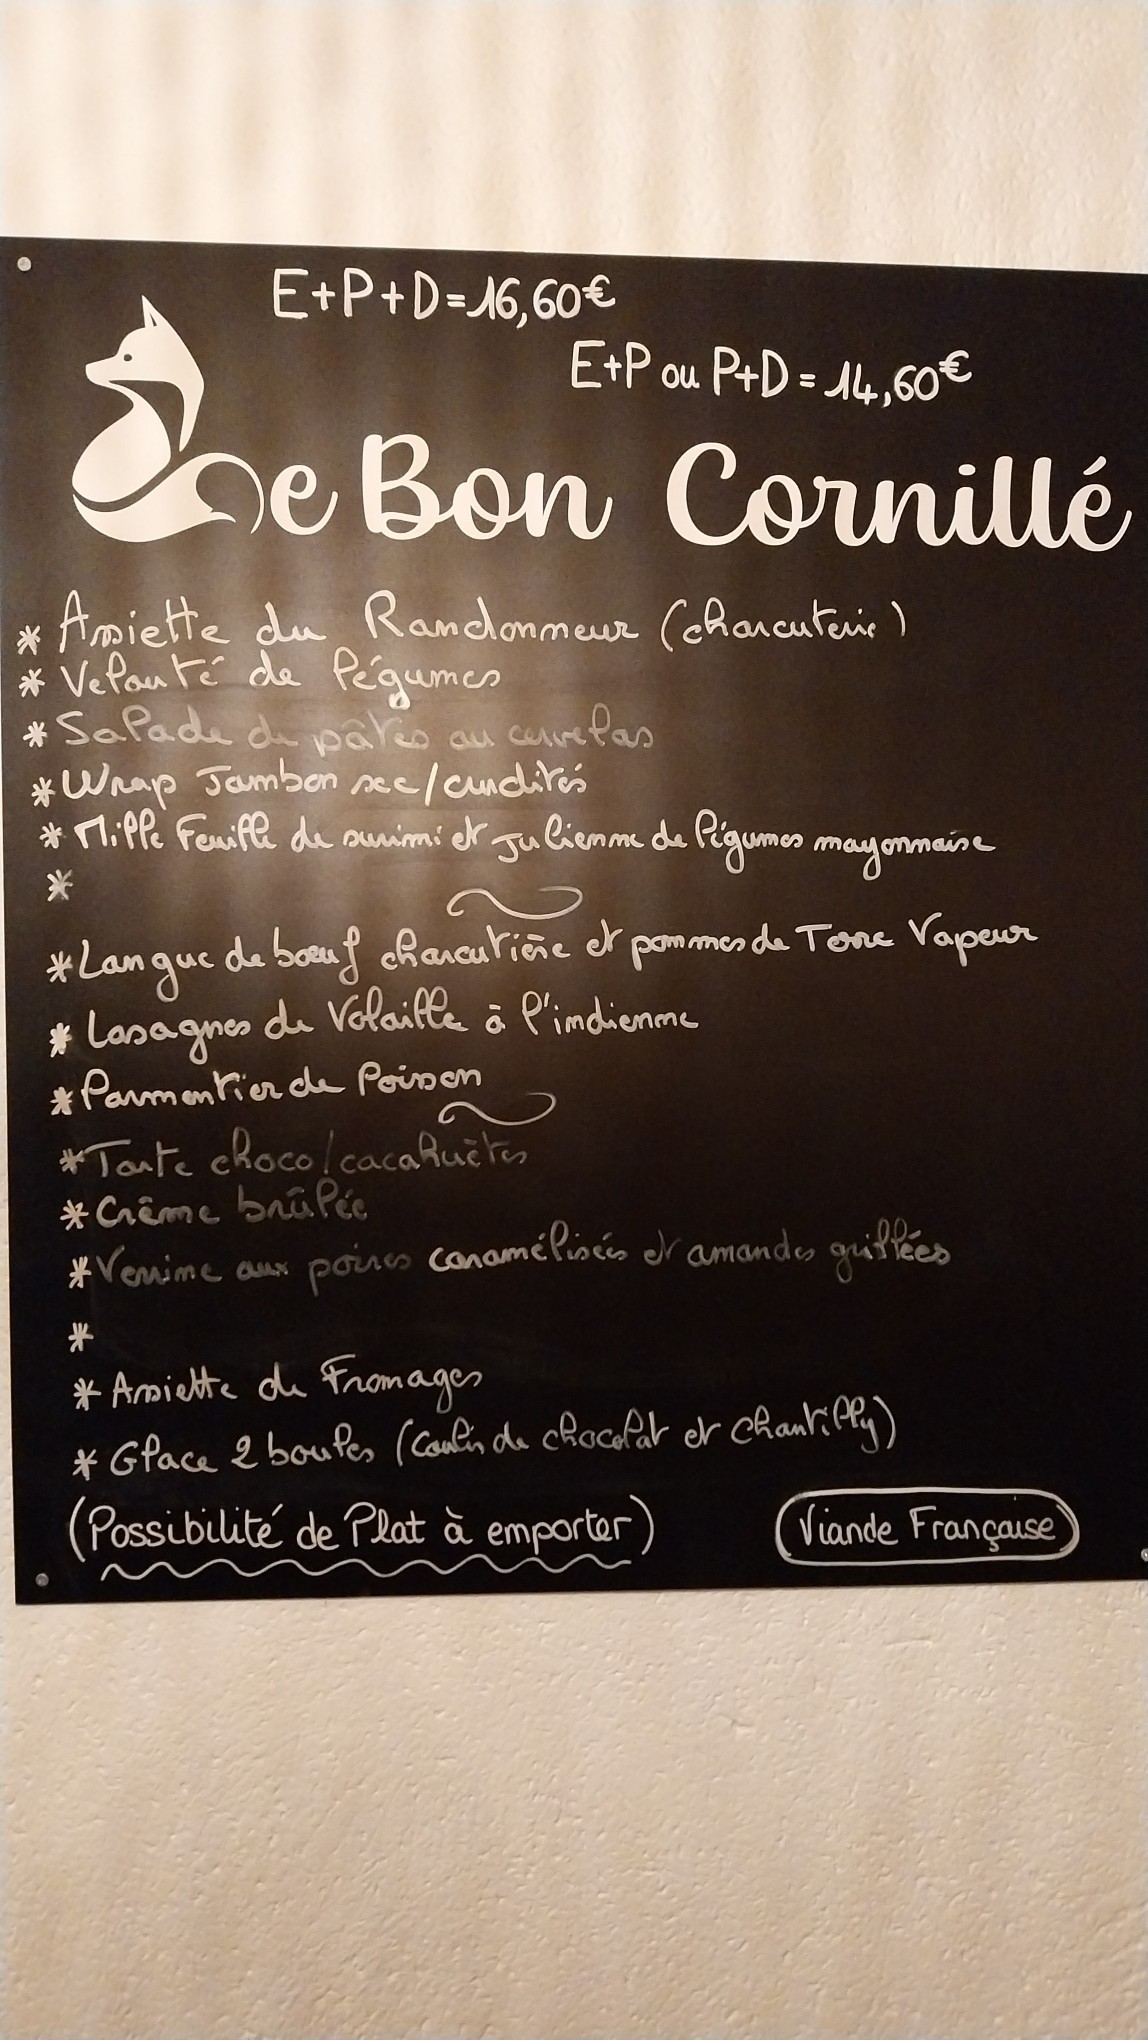 E+P+D=16,60€
E+P ou P+D=14,60€
Le Bon Cornillé
* Assiette du Randonneur (charcuterie)
* Velouté de légumes
* Salade de pâtes au cervelas
* Wrap Jambon sec/crudités
* Mille Feuille de surimi et julienne de légumes mayonnaise
*
* Langue de bœuf charcutière et pommes de Terre Vapeur
* Lasagnes de Volaille à l'indienne
* Parmentier de Poisson
* Tarte choco/cacahuètes
* Crème brûlée
* Verrine aux poires caramélisées et amandes grillées
*
* Assiette de Fromages
* Glace 2 boules (Coulis de chocolat et chantilly)
(Possibilité de Plat à emporter)
Viande Française